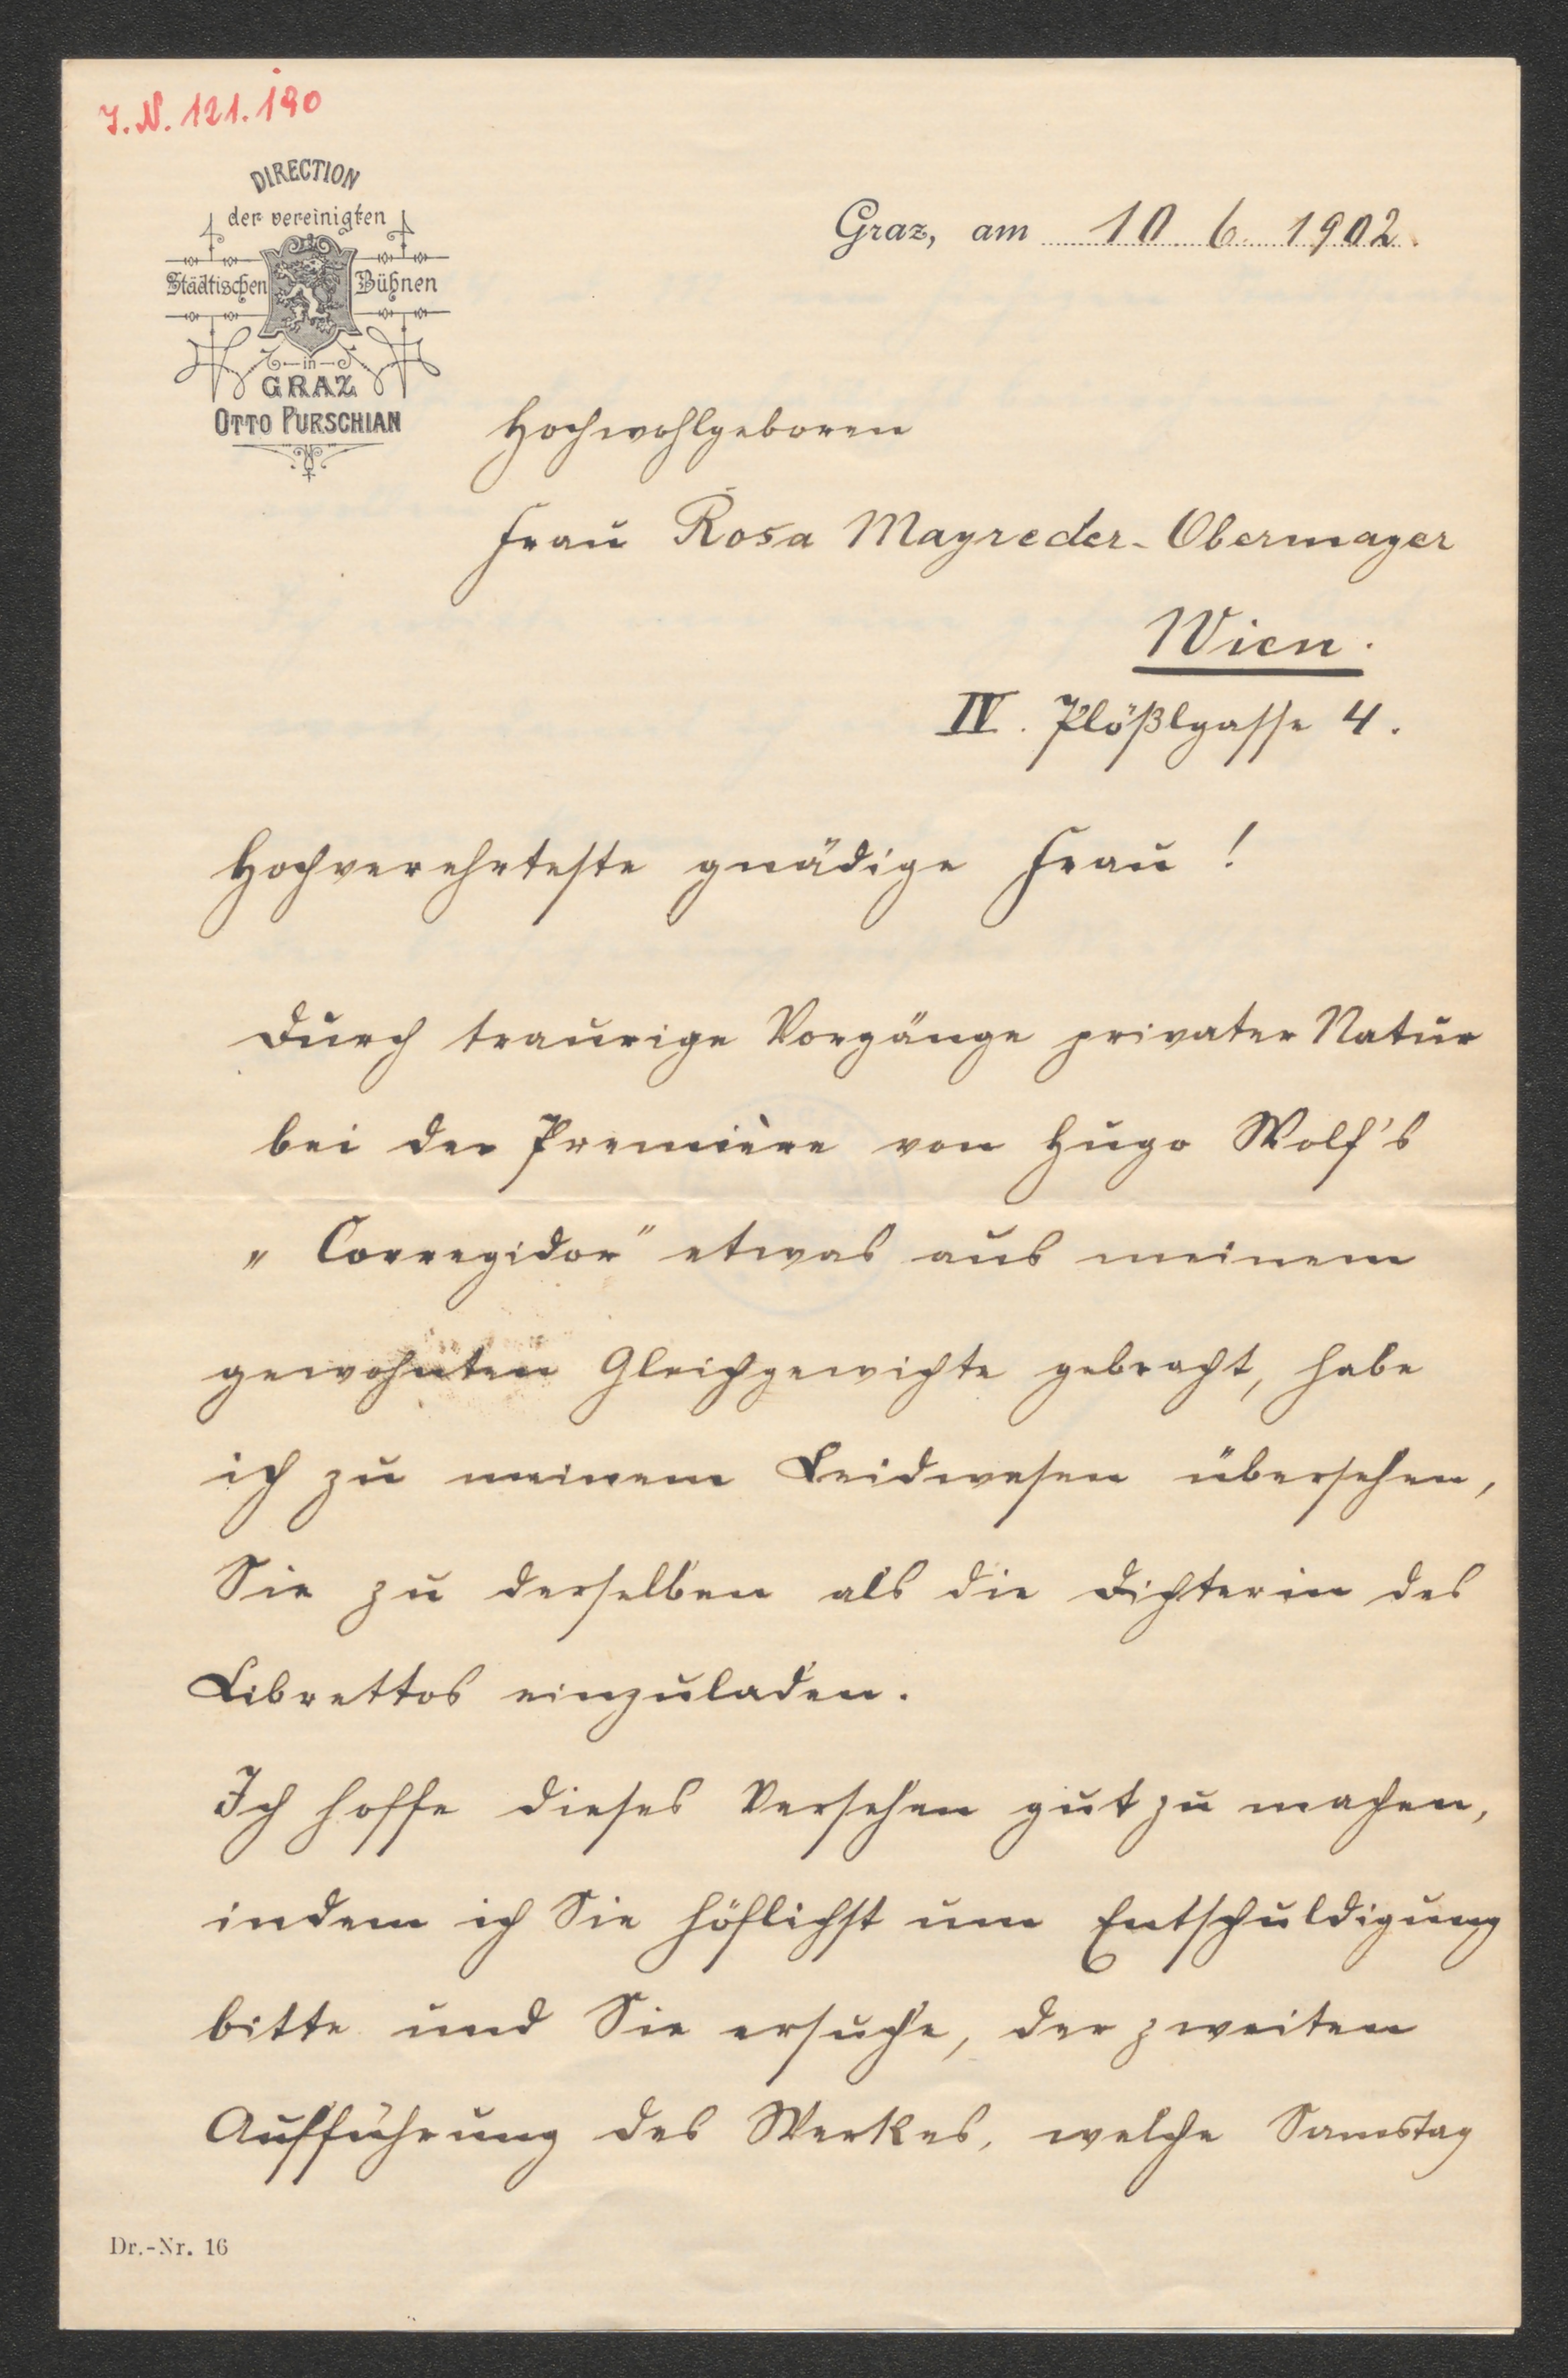 J. N. 121.190
DIRECTION
der vereinigten
Städtischen Bühnen
in
GRAZ
OTTO PURSCHIAN
Graz, am 10 6. 1902.
Hochwohlgeboren
Frau Rosa Mayreder-Obermayer
Wien.
IV. Plößlgasse 4.
Hochverehrteste gnädige Frau!
Durch traurige Vorgänge privater Natur
bei der Première von Hugo Wolf's
„Corregidor" etwas aus meinem
gewohnten Gleichgewichte gebracht, habe
ich zu meinem Leidwesen übersehen,
Sie zu derselben als die Dichterin des
Librettos einzuladen.
Ich hoffe dieses Versehen gut zu machen,
indem ich Sie höflichst um Entschuldigung
bitte und Sie ersuche, der zweiten
Aufführung des Werkes, welche Samstag
Dr.-Nr. 16